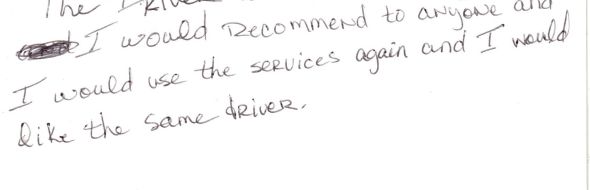 The Driver
I would Recommend to anyone and
I would use the services again and I would
like the same driver.